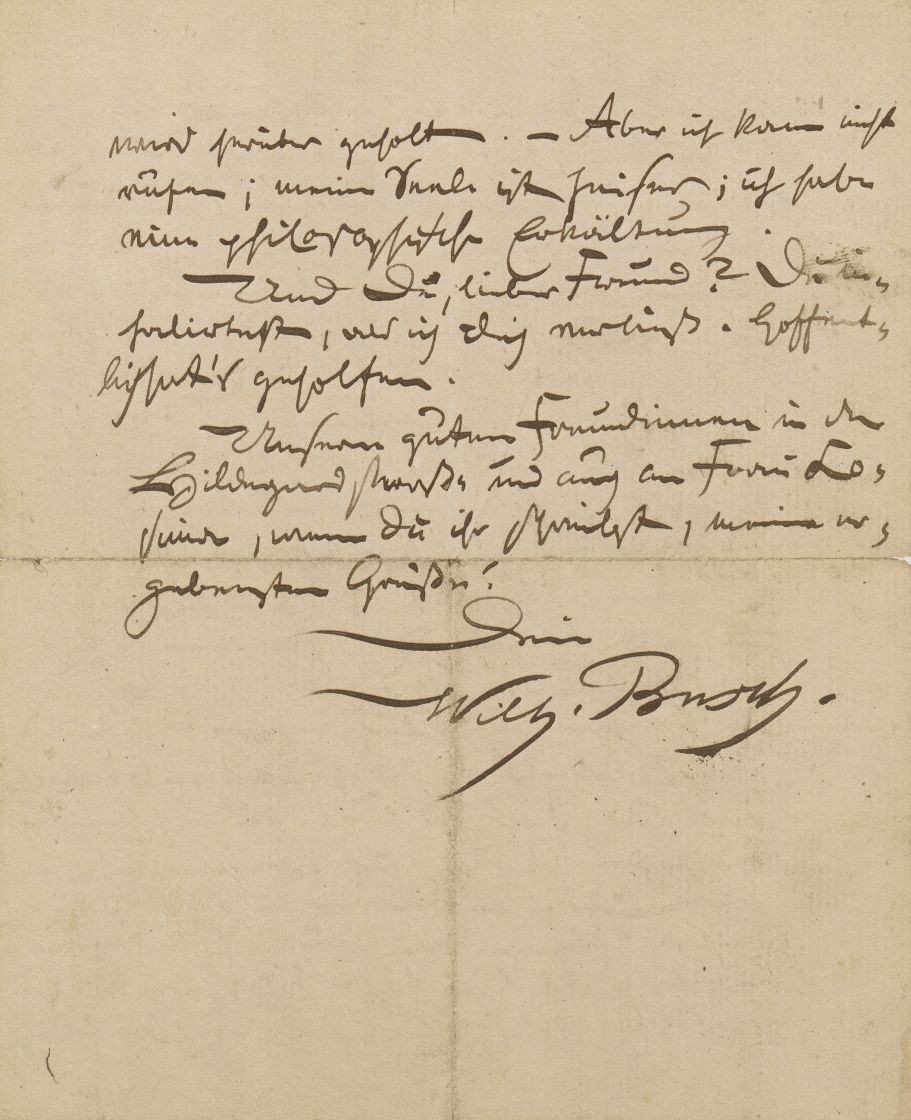 wird herüber geholt. — Aber ich kann nicht
rufen; meine Seele ist heiser; ich habe
eine philosophische Erkältung.
Und Du, lieber Freund? Du in-
halirtest, als ich dich verließ. Hoffent-
lich hat's geholfen.
Unsern guten Freundinnen in der
Hildegardstraße und auch an Frau Le-
, wenn du ihr schreibst, meine er-
gebensten Grüße!
Dein
Wilh. Busch.